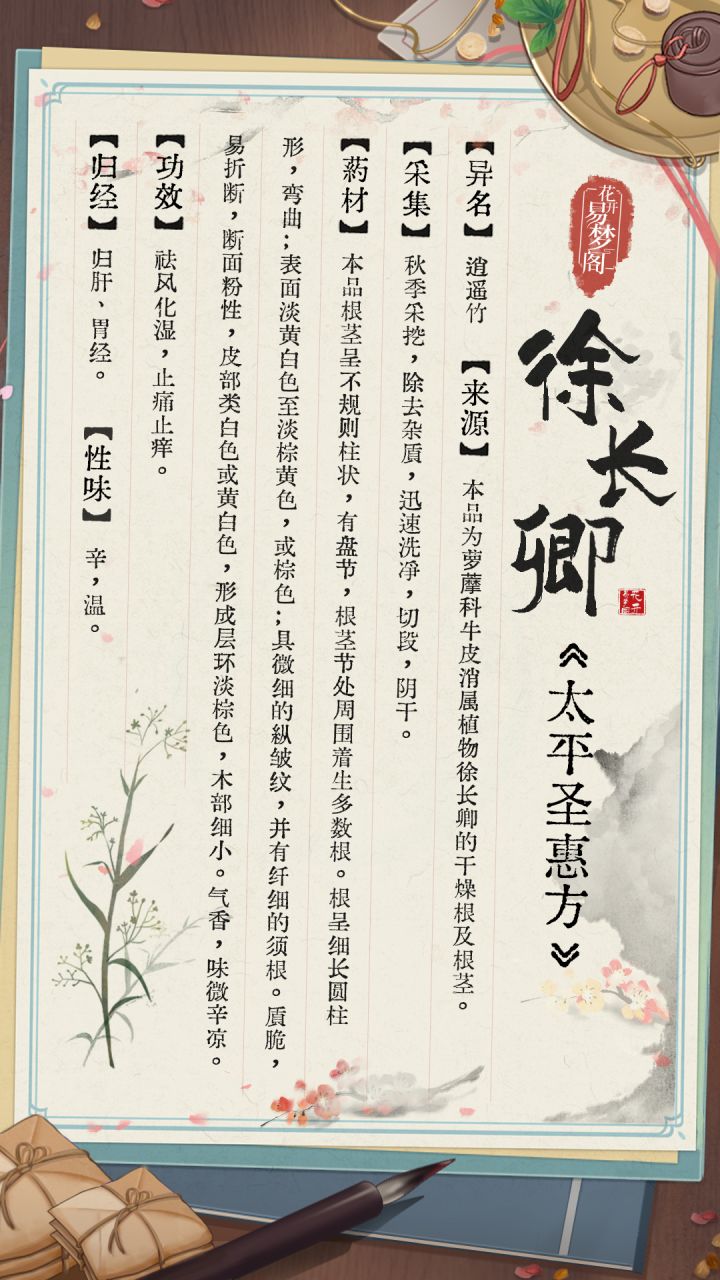 花开
易梦阁
徐长卿
《太平圣惠方》
【异名】 逍遥竹 【来源】 本品为萝藦科牛皮消属植物徐长卿的干燥根及根茎。
【采集】 秋季采挖，除去杂质，迅速洗净，切段，阴干。
【药材】 本品根茎呈不规则柱状，有盘节，根茎节处周围着生多数根。根呈细长圆柱
形，弯曲；表面淡黄白色至淡棕黄色，或棕色；具微细的纵皱纹，并有纤细的须根。质脆，
易折断，断面粉性，皮部类白色或黄白色，形成层环淡棕色，木部细小。气香，味微辛凉。
【功效】 祛风化湿，止痛止痒。
【归经】 归肝、胃经。 【性味】 辛，温。